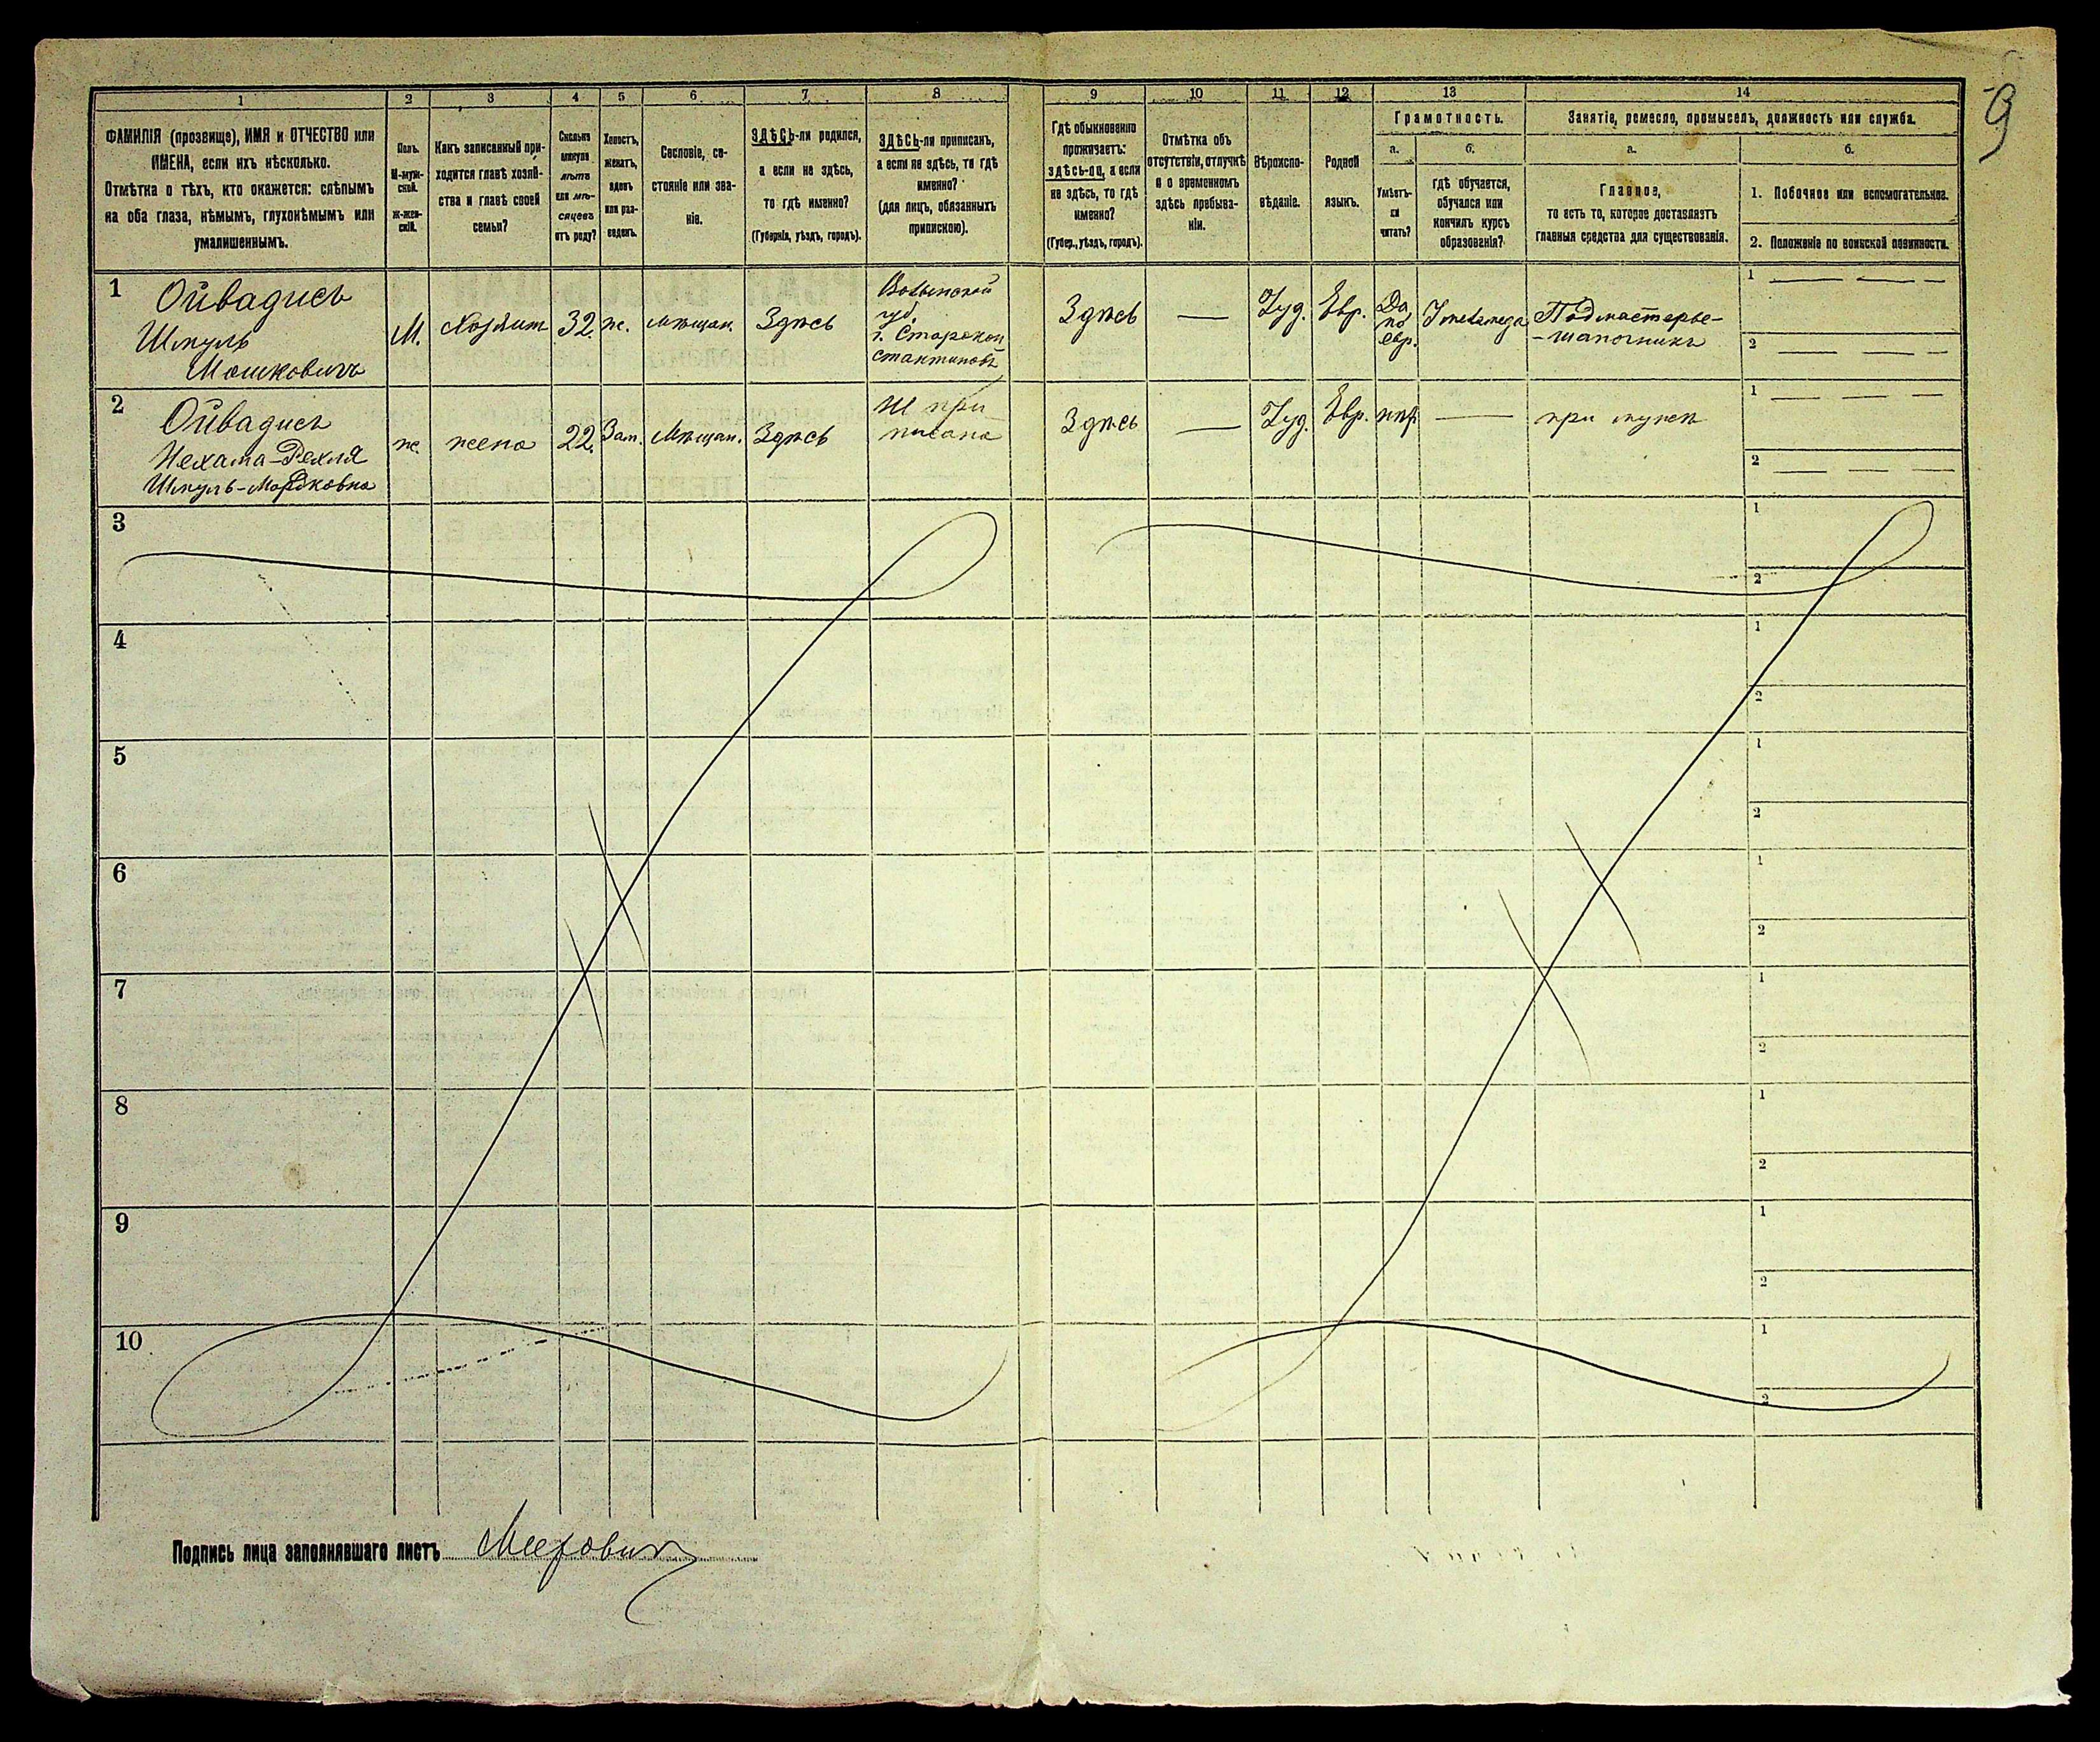 9
1 2 3 4 5 6 7 8 9 10 11 12 13 14
ФАМИЛІЯ (прозвище), ИМЯ и ОТЧЕСТВО или
ИМЕНА, если ихъ нѣсколько.
Отмѣтка о тѣхъ, кто окажется: слѣпымъ
на оба глаза, нѣмымъ, глухонѣмымъ или
умалишеннымъ.
Полъ.
М-муж-
ской.
Ж-жен-
скій.
Какъ записанный при-
ходится главѣ хозяй-
ства и главѣ своей
семьи?
Сколько
минуло
лѣтъ
или мѣ-
сяцевъ
отъ роду?
Холостъ,
женатъ,
вдовъ
или раз-
веденъ.
Сословіе, со-
стояніе или зва-
ніе.
ЗДѢСЬ-ли родился,
а если не здѣсь,
то гдѣ именно?
(Губернія, уѣздъ, городъ).
ЗДѢСЬ-ли приписанъ,
а если не здѣсь, то гдѣ
именно?
(для лицъ, обязанныхъ
припискою).
Гдѣ обыкновенно
проживаетъ:
здѣсь-ли, а если
не здѣсь, то гдѣ
именно?
(Губер., уѣздъ, городъ).
Отмѣтка объ
отсутствіи, отлучкѣ
и о временномъ
здѣсь пребыва-
ніи.
Вѣроиспо-
вѣданіе.
Родной
языкъ.
Грамотность.
а.
Умѣетъ-
ли
читать?
б.
гдѣ обучается,
обучался или
кончилъ курсъ
образованія?
Занятіе, ремесло, промыселъ, должность или служба.
а.
Главное,
то есть то, которое доставляетъ
главныя средства для существованія.
б.
1. Побочное или вспомогательное.
2. Положеніе по воинской повинности.
1
Ойвадисъ
Шмуль
Мошковичъ
М.
Хозяин
32.
ж.
Мѣщан.
Здѣсь
Волынской
губ.
г. Старокон
стантиновъ
Здѣсь
—
Іуд.
Евр.
Да,
по
евр.
У меламеда
Подмастерье-
-шапочникъ
1 — — —
2 — — —
2
Ойвадисъ
Нехама-Рехля
Шмуль-Мордковна
ж.
жена
22.
Зам.
Мѣщан.
Здѣсь
при
писана
Здѣсь
—
Іуд.
Евр.
нѣт
—
при мужѣ
1 — — —
2 — — —
3
1
2
4
1
2
5
1
2
6
1
2
7
1
2
8
1
2
9
1
2
10
1
2
Подпись лица заполнявшаго листъ Меерович